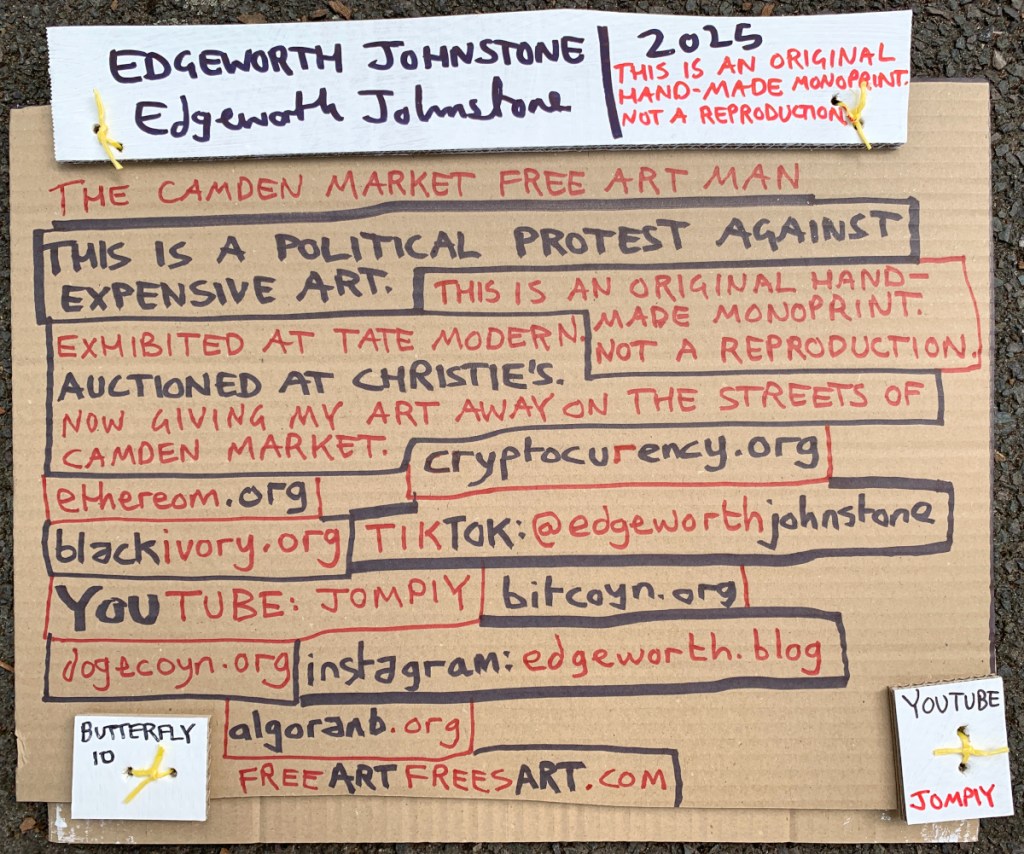 EDGEWORTH JOHNSTONE
Edgeworth Johnstone
2025
THIS IS AN ORIGINAL
HAND-MADE MONOPRINT.
NOT A REPRODUCTION.
THE CAMDEN MARKET FREE ART MAN
THIS IS A POLITICAL PROTEST AGAINST
EXPENSIVE ART.
THIS IS AN ORIGINAL HAND-
MADE MONOPRINT.
NOT A REPRODUCTION.
EXHIBITED AT TATE MODERN.
AUCTIONED AT CHRISTIE'S.
NOW GIVING MY ART AWAY ON THE STREETS OF
CAMDEN MARKET.
cryptocurency.org
ethereom.org
blackivory.org
TIKTOK: @edgeworthjohnstone
YOUTUBE: JOMPIY
bitcoyn.org
dogecoyn.org
instagram: edgeworth.blog
algoranb.org
FREEARTFREESART.COM
BUTTERFLY
10
YOUTUBE
JOMPIY